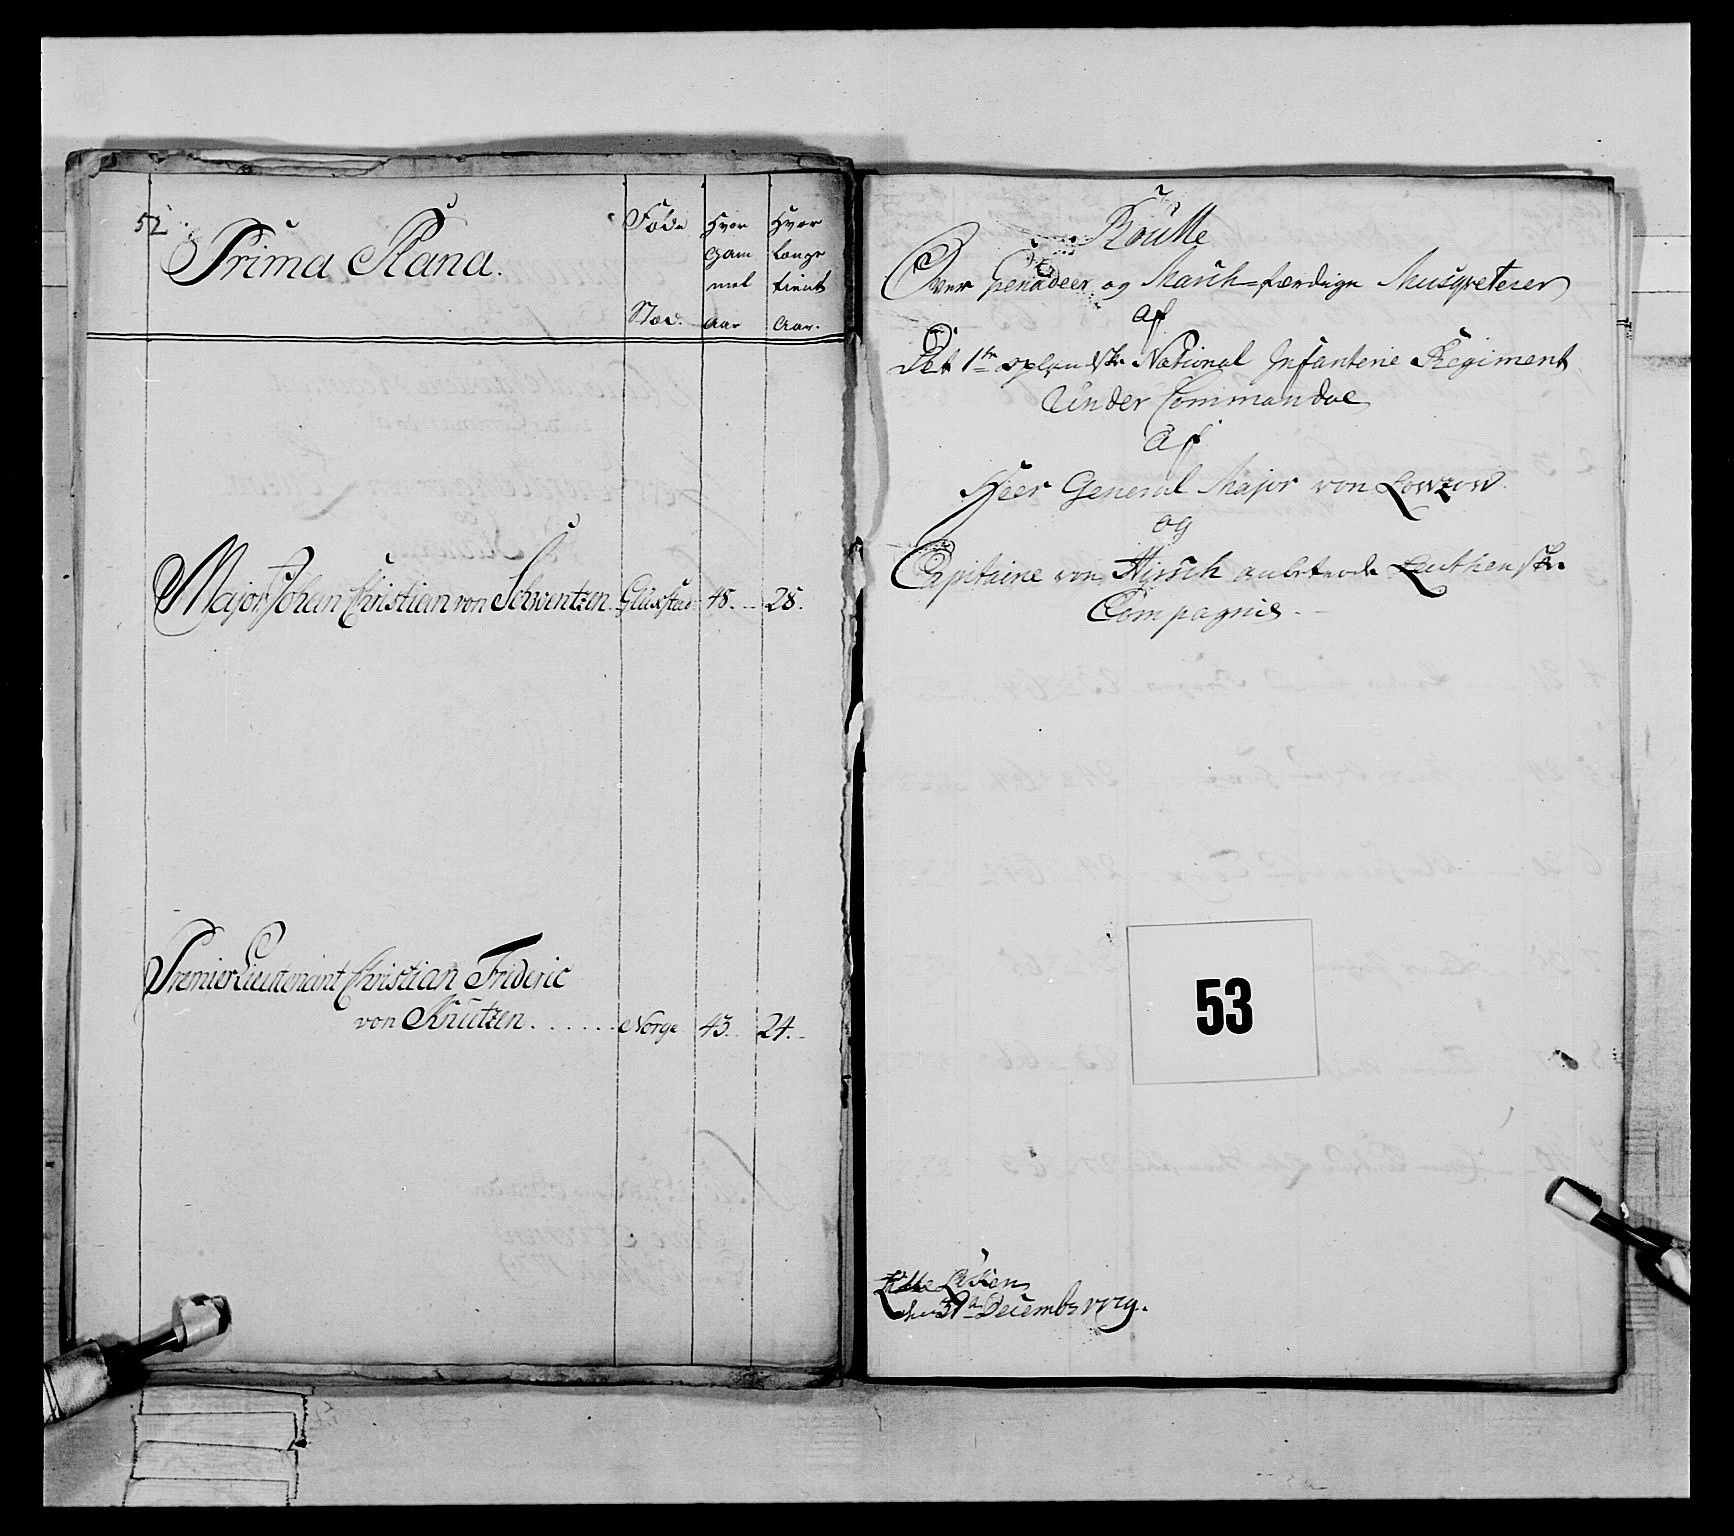 52
Prima Plana.
Føde Stæd.
Hvor gam mel Aar
Hvor længe tient Aar.
Major Johan Christian von Schwentzen. Glükstad 48. 28.
Premier Lieutenant Christian Frideric
von Knützen. . . . . . Norge 43. 24.
Roulle
Over Genadeer og March-færdige Musqveterer
af
Det 1te oplandske National Infanterie Regiment
Under Commandoe
af
Herr General Major von Lowzow
og
Capitaine von Hirsch anbetroede Leuthenske
Compagnie.
53
den 31te Decembr 1779.